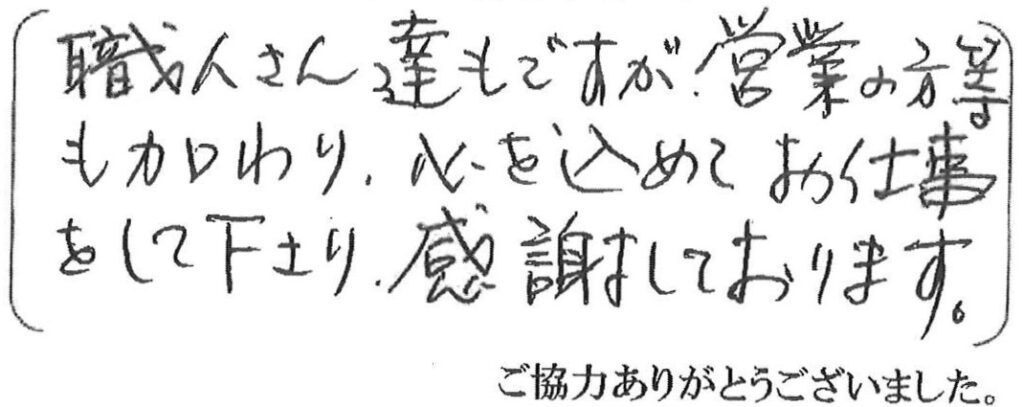 職人さん達もですが、営業の方等
も加わり、心を込めてお仕事
をして下さり、感謝しております。
ご協力ありがとうございました。